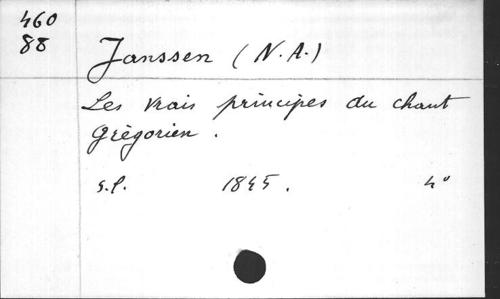 460
88
Janssen (N.A.)
Les vrais principes du chant
grégorien.
s.l. 1845. 4°